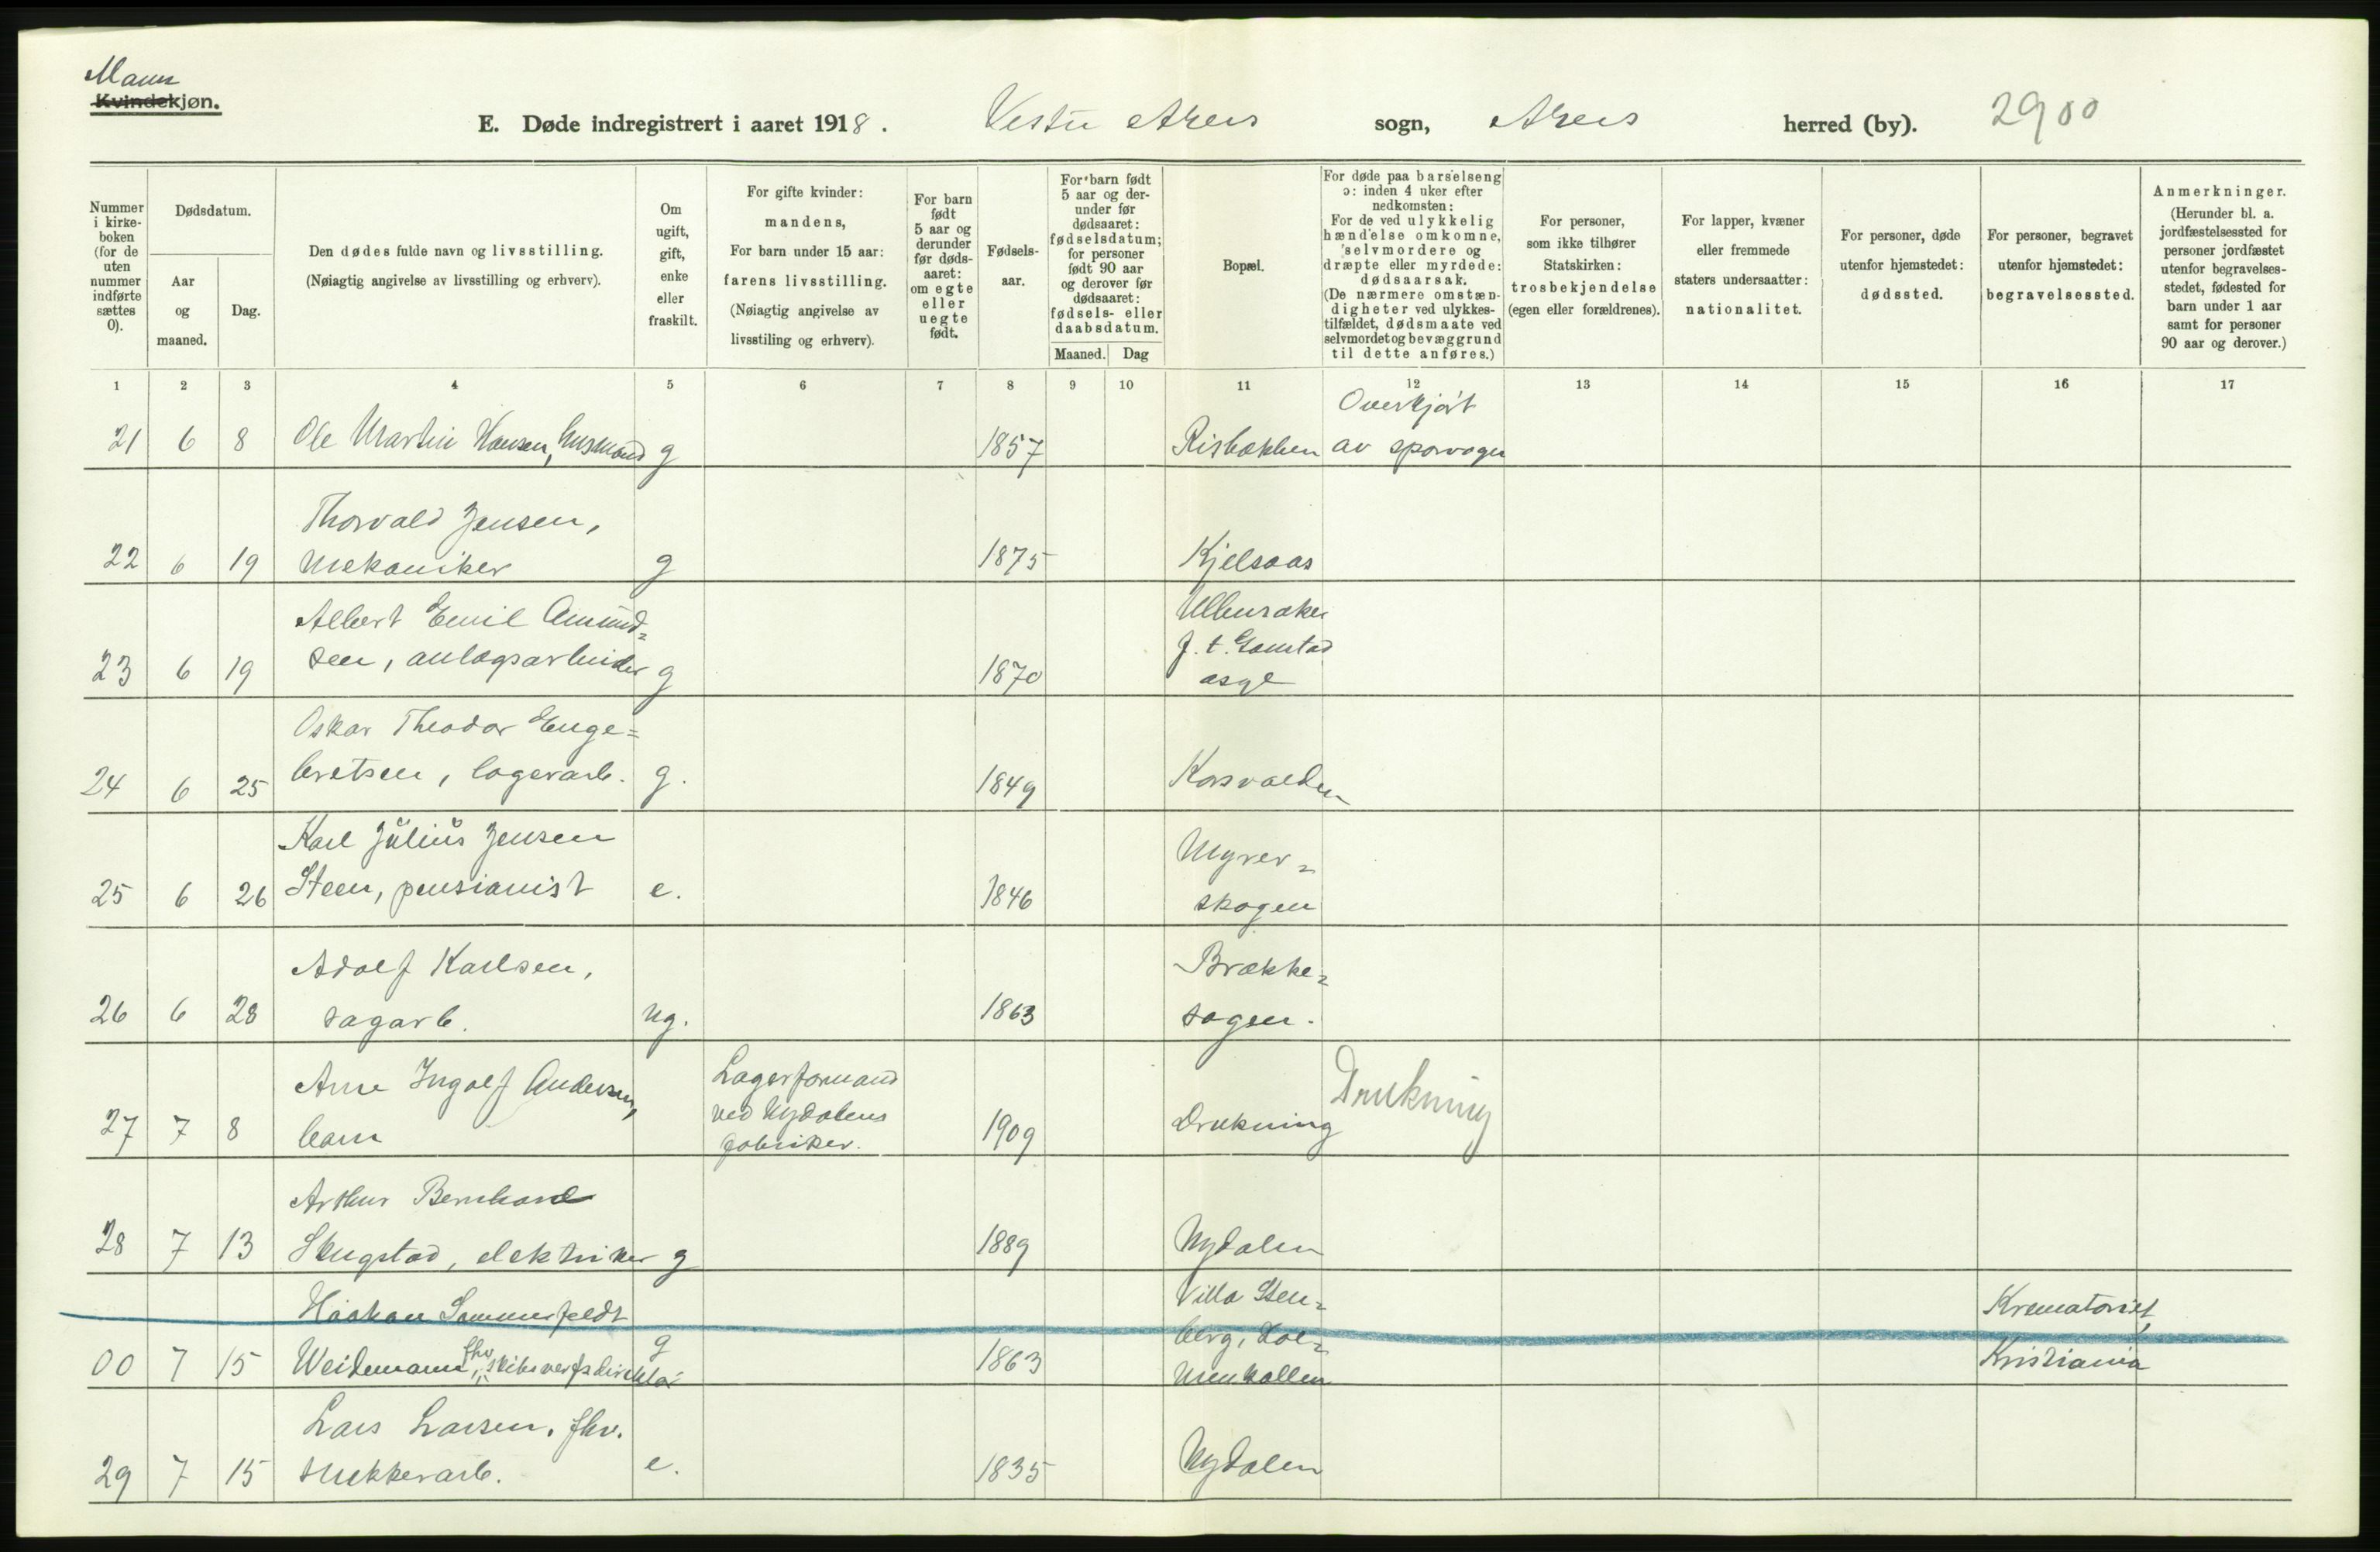 Mann
Kvindekjøn.
E. Døde indregistrert i aaret 1918. Vestre Akers sogn, Akers herred (by). 2900
Nummer i kirke-boken (for de uten nummer indførte sættes 0).
Dødsdatum.
Aar og maaned.
Dag.
Den dødes fulde navn og livsstilling.
(Nøiagtig angivelse av livsstilling og erhverv).
Om ugift, gift, enke eller fraskilt.
For gifte kvinder: mandens,
For barn under 15 aar: farens livsstilling.
(Nøiagtig angivelse av livsstiling og erhverv).
For barn født 5 aar og derunder før døds-aaret: om egte eller uegte født.
Fødsels-aar.
For barn født 5 aar og der-under før dødsaaret: fødselsdatum; for personer født 90 aar og derover før dødsaaret: fødsels- eller daabsdatum.
Maaned. Dag
Bopæl.
For døde paa barselseng ɔ: inden 4 uker efter nedkomsten:
For de ved ulykkelig hændelse omkomne, selvmordere og dræpte eller myrdede: dødsaarsak.
(De nærmere omstæn-digheter ved ulykkes-tilfældet, dødsmaate ved selvmordet og bevæggrund til dette anføres.)
For personer, som ikke tilhører Statskirken: trosbekjendelse (egen eller forældrenes).
For lapper, kvæner eller fremmede staters undersaatter: nationalitet.
For personer, døde utenfor hjemstedet: dødssted.
For personer, begravet utenfor hjemstedet: begravelsessted.
Anmerkninger.
(Herunder bl. a. jordfæstelsessted for personer jordfæstet utenfor begravelses-stedet, fødested for barn under 1 aar samt for personer 90 aar og derover.)
1 2 3 4 5 6 7 8 9 10 11 12 13 14 15 16 17
Overkjørt
21 6 8 Ole Martin Hansen, husmand g 1857 Risbækken av sporvogn
Thorvald Jensen,
22 6 19 mekaniker g 1875 Kjelsaas
Albert Emil Amund= Ullevaaker
sen, anlægsarbeider f. t. Gaustad
23 6 19 g 1870 asyl
Oskar Theodor Enge=
24 6 25 bretsen, lagerarb. g. 1849 Korsvolden
Karl Julius Jensen Myrer=
25 6 26 Steen, pensionist e. 1846 skogen
Adolf Karlsen, Brække=
26 6 28 sagarb. ug. 1863 sagen.
Arne Ingolf Andersen, Lagerformand Drukning
ved Nydalens
27 7 8 barn fabriker. 1909 Drukning
Arthur Bernhard
28 7 13 Skugstad, elektriker g 1889 Nydalen
Haakon Sommerfeldt Villa Sten= Krematoriet,
g berg, Hol=
00 7 15 Weidemann, fhv. skibsverfsdirektør 1863 menkollen Kristiania
Lars Larsen, fhv.
29 7 15 trukkerarb. e. 1835 Nydalen